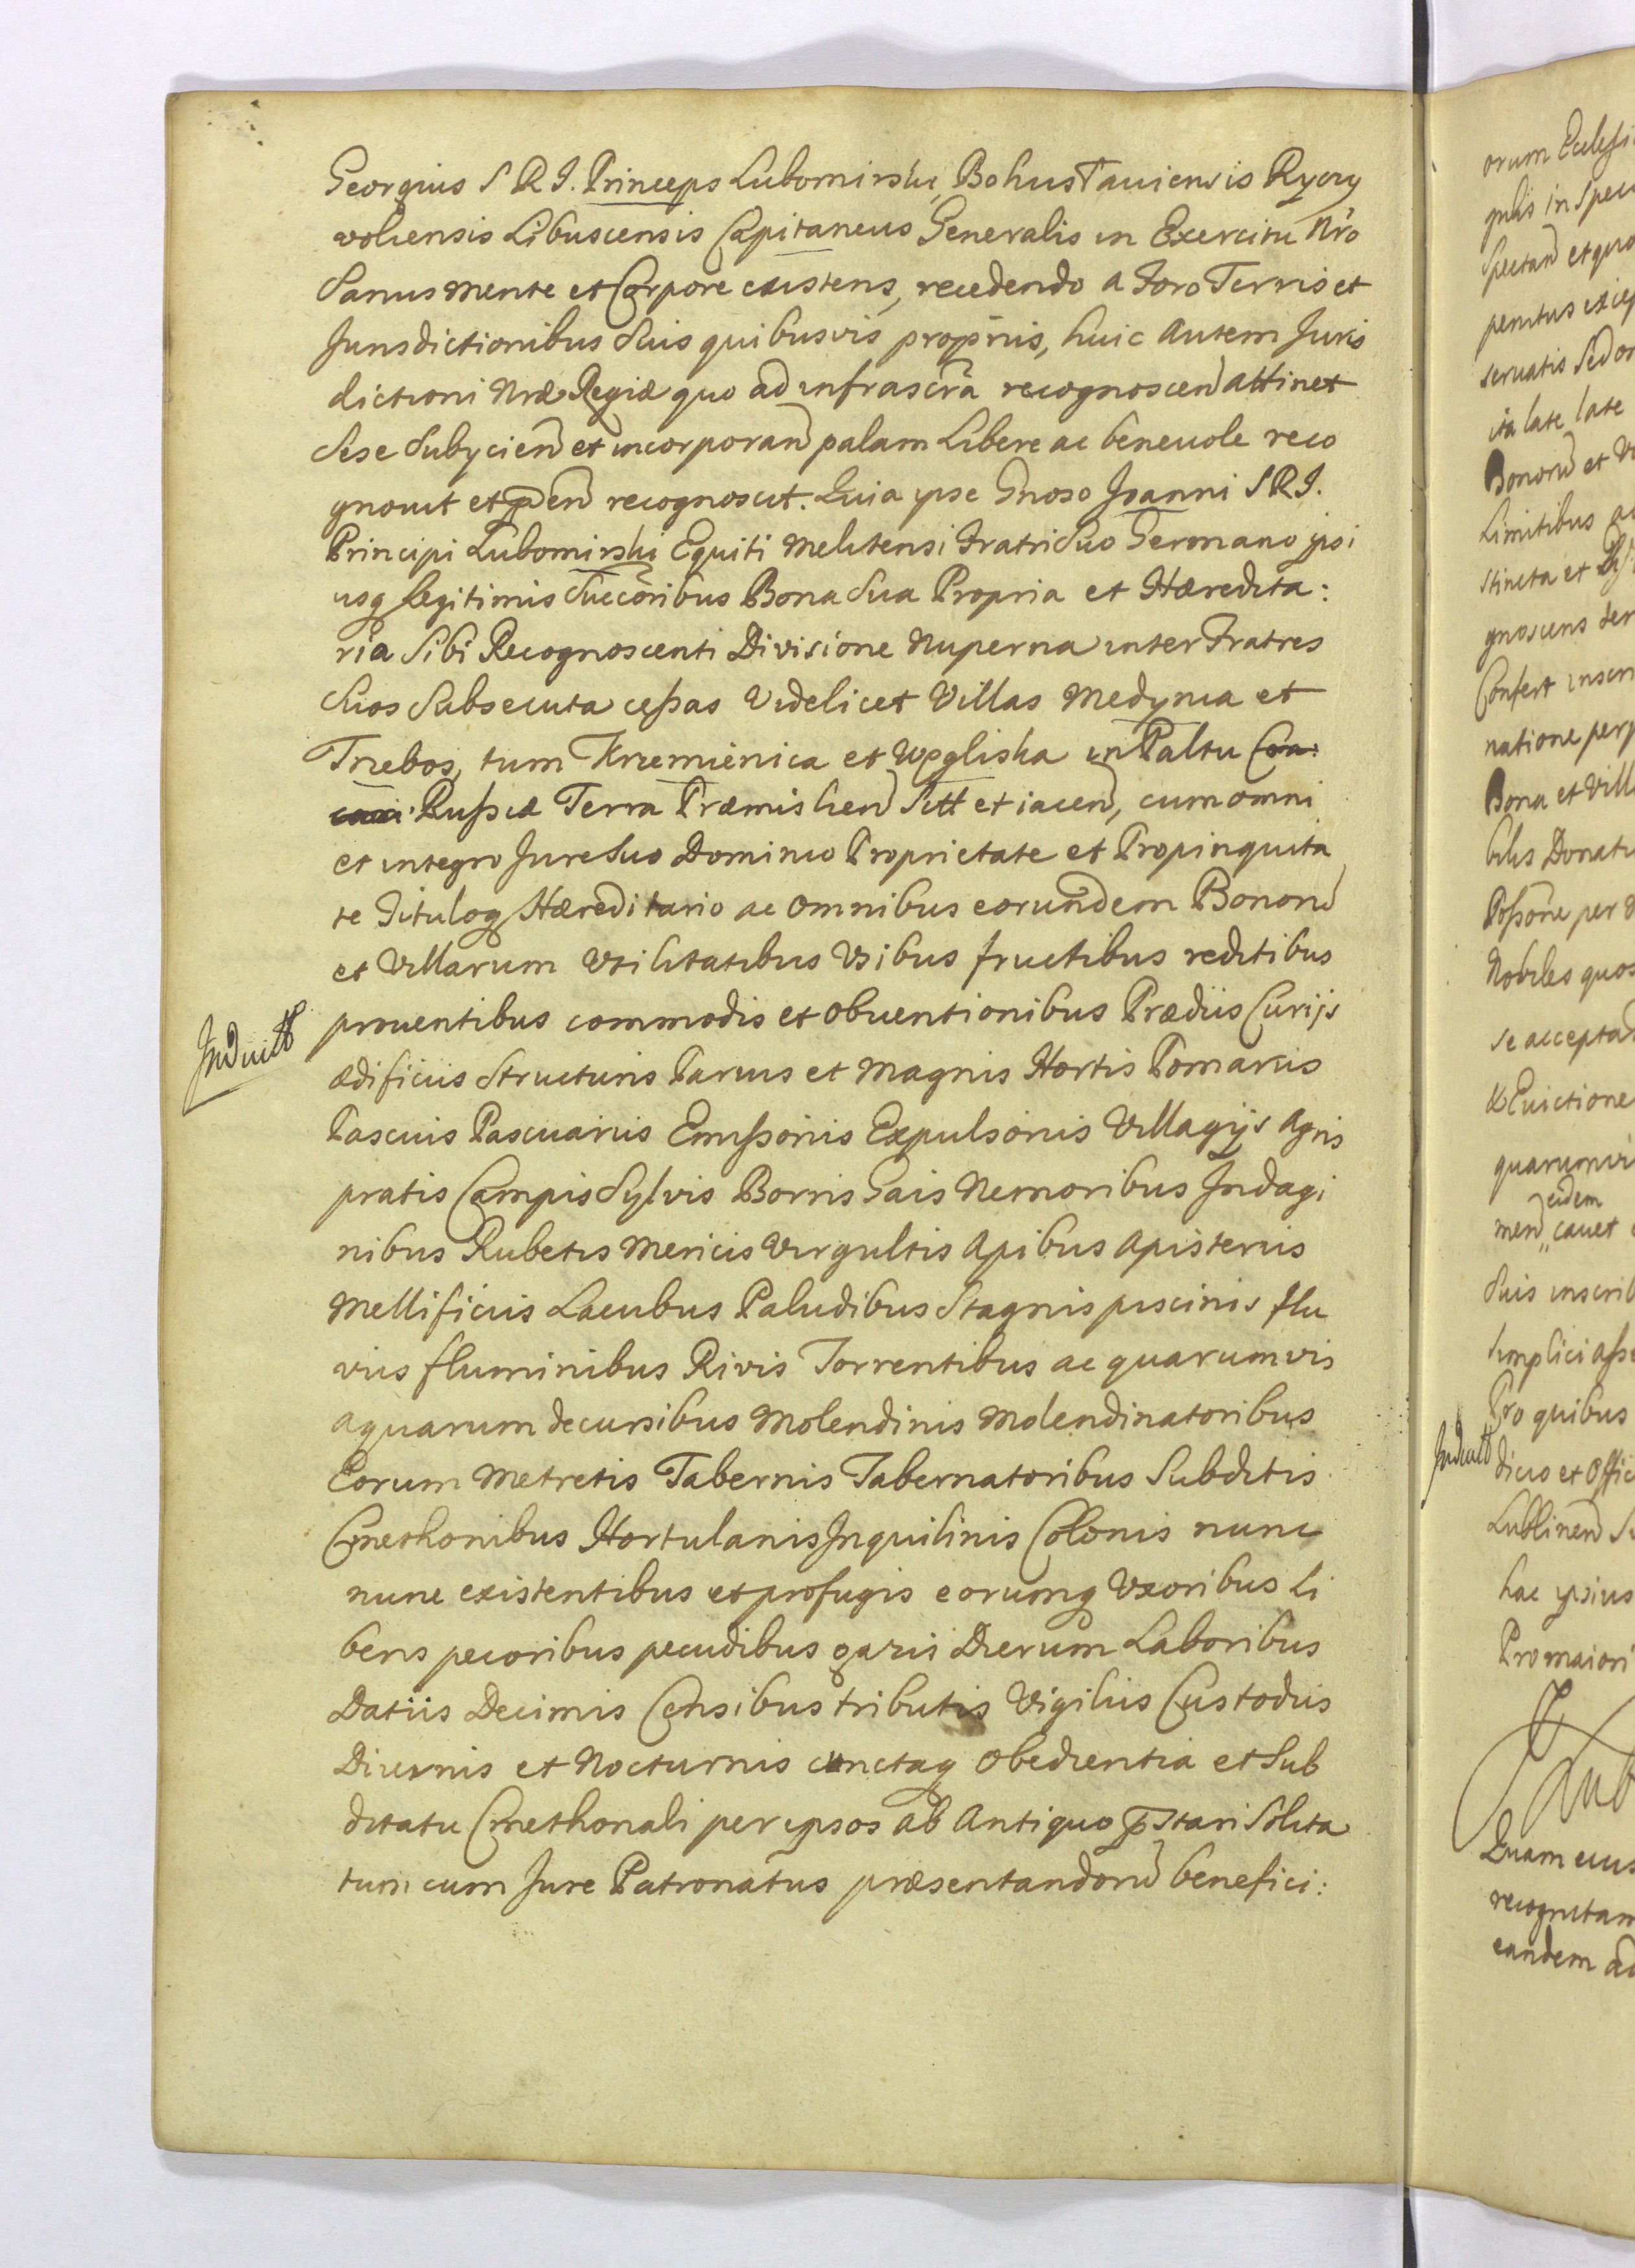 Georgius S R I. Princeps Lubomirski, Bohustaviensis Ryczy
woliensis Libuscensis Capitaneus Generalis in Exercitu Nrō
Sanus mente et Corpore existens, recedendo a Foro Terris et
Jurisdictionibus Suis quibusvis proprijs, huic autem Juris
dictioni Nræ Regiæ quo ad infrascrā recognoscen̄ attinet
Sese Subijcien̄ et incorporan̄ palam Libere ac beneuole reco
gnouit et p̄en̄ recognoscit. Quia ipse Gnoso Joanni S R I.
Principi Lubomirski Equiti Melitensi Fratri Suo Germano ipsi
usq legitimis Succōribus Bona Sua Propria et Hæredita:
ria Sibi Recognoscenti Divisione Nuperna inter Fratres
Suos Subsecuta ceßas Videlicet Villas Medynia et
Trzebos, tum Krzemienica et Węgliska in Paltu
Rußiæ Terra Præmislien̄ Sitt et iacen̄, cum omni
et integro Jure Suo Dominio Proprietate et Propinquita
te Titulog Hæreditario ac omnibus eorundem Bonorū
et Villarum Vtilitatibus Vsibus fructibus reditibus
prouentibus commodis et obuentionibus Prædiis Curijs
ædificiis Structuris Paruis et Magnis Hortis Pomariis
Pascuis Pascuariis Emißoriis Expulsoriis Villagijs Agris
pratis Campis Sylvis Borris Gais Nemoribus Indagi
nibus Rubetis Mericis Virgultis Apibus Apisteriis
Mellificiis Lacubus Paludibus Stagnis piscinis flu
viis fluminibus Rivis Torrentibus ac quarumvis
aquarum decursibus Molendinis Molendinatoribus
Eorum Metretis Tabernis Tabernatoribus Subditis
Cmethonibus Hortulanis Inquilinis Colonis nunc
nunc existentibus et profugis eorumq Vxoribus li
beris pecoribus pecudibus gazis Dierum Laboribus
Datiis Decimis Censibus tributis Vigiliis Custodiis
Diurnis et Nocturnis cunctaq Obedientia et Sub
ditatu Cmethonali per ipsos ab Antiquo p̄stari Solita
tum cum Jure Patronatus præsentandorū benefici:
Induct
orum Ecclesi
Spectan̄ et quo
penitus excep
servatis Sed
ita late late
Bonorū et Vi
Limitibus
stincta et
gnoscens
Confert
natione perp
Bona et Vill
bilis Donati
Poßone per
Nobiles quos
se acceptan
Evictione
quarumvi
eidem
men̄ cauet
Suis inscrib
simplici aße
Pro quibus
dicio et Offic
Lublinen̄
hac ipsius
Pro maiori
Lub
Quam
recognitam
eandem